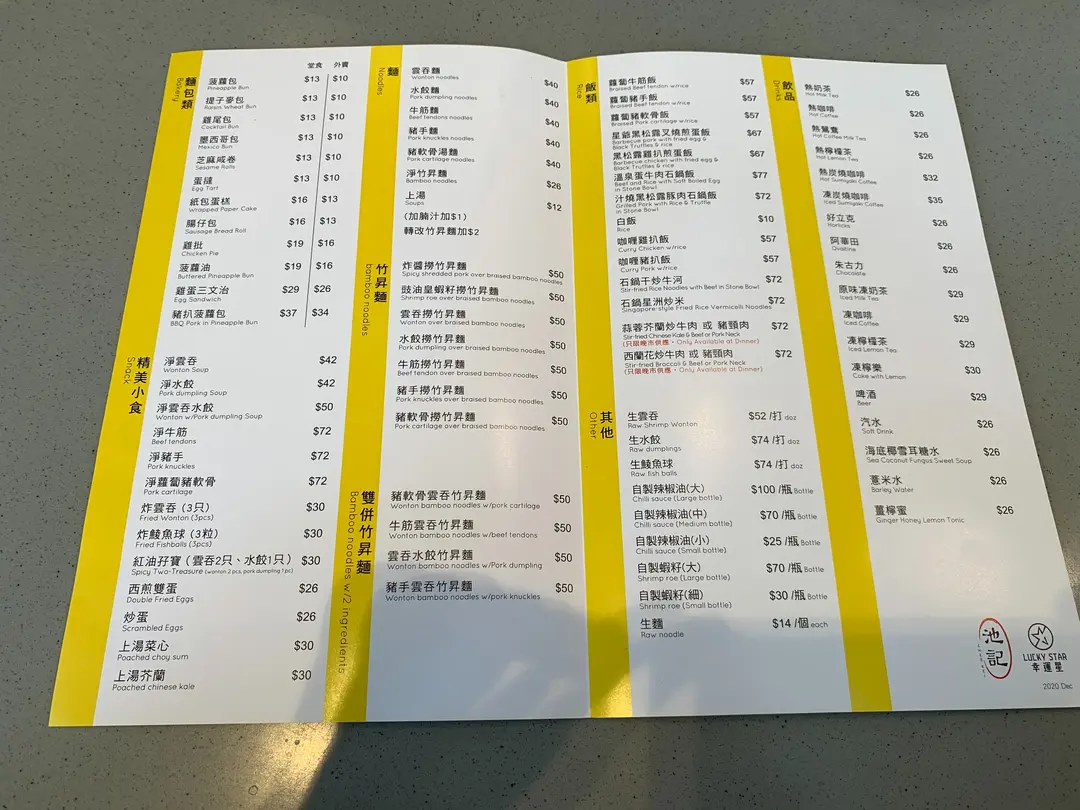 麵包類
Bakery
堂食 外賣
菠蘿包 $13 $10
Pineapple Bun
提子麥包 $13 $10
Raisin Wheat Bun
雞尾包 $13 $10
Cocktail Bun
墨西哥包 $13 $10
Mexico Bun
芝麻咸卷 $13 $10
Sesame Rolls
蛋撻 $13 $10
Egg Tart
紙包蛋糕 $16 $13
Wrapped Paper Cake
腸仔包 $16 $13
Sausage Bread Roll
雞批 $19 $16
Chicken Pie
菠蘿油 $19 $16
Buttered Pineapple Bun
雞蛋三文治 $29 $26
Egg Sandwich
豬扒菠蘿包 $37 $34
BBQ Pork in Pineapple Bun
精美小食
Snack
淨雲吞 $42
Wonton Soup
淨水餃 $42
Pork dumpling Soup
淨雲吞水餃 $50
Wonton w/Pork dumpling Soup
淨牛筋 $72
Beef tendons
淨豬手 $72
Pork knuckles
淨蘿蔔豬軟骨 $72
Pork cartilage
炸雲吞（3只） $30
Fried Wonton (3pcs)
炸鯪魚球（3粒） $30
Fried Fishballs (3pcs)
紅油孖寶（雲吞2只、水餃1只） $30
Spicy Two-Treasure (wonton 2 pcs, pork dumpling 1 pc)
西煎雙蛋 $26
Double Fried Eggs
炒蛋 $26
Scrambled Eggs
上湯菜心 $30
Poached choy sum
上湯芥蘭 $30
Poached chinese kale
麵
Noodles
雲吞麵 $40
Wonton noodles
水餃麵 $40
Pork dumpling noodles
牛筋麵 $40
Beef tendons noodles
豬手麵 $40
Pork knuckles noodles
豬軟骨湯麵 $40
Pork cartilage noodles
淨竹昇麵 $26
Bamboo noodles
上湯 $12
Soups
(加腩汁加$1)
轉改竹昇麵加$2
竹昇麵
bamboo noodles
炸醬撈竹昇麵 $50
Spicy shredded pork over braised bamboo noodles
豉油皇蝦籽撈竹昇麵 $50
Shrimp roe over braised bamboo noodles
雲吞撈竹昇麵 $50
Wonton over braised bamboo noodles
水餃撈竹昇麵 $50
Pork dumpling over braised bamboo noodles
牛筋撈竹昇麵 $50
Beef tendon over braised bamboo noodles
豬手撈竹昇麵 $50
Pork knuckles over braised bamboo noodles
豬軟骨撈竹昇麵 $50
Pork cartilage over braised bamboo noodles
雙併竹昇麵
Bamboo noodles w/2 ingredients
豬軟骨雲吞竹昇麵 $50
Wonton bamboo noodles w/pork cartilage
牛筋雲吞竹昇麵 $50
Wonton bamboo noodles w/beef tendons
雲吞水餃竹昇麵 $50
Wonton bamboo noodles w/Pork dumpling
豬手雲吞竹昇麵 $50
Wonton bamboo noodles w/pork knuckles
飯類
Rice
蘿蔔牛筋飯 $57
Braised Beef tendon w/rice
蘿蔔豬手飯 $57
Braised Beef tendon w/rice
蘿蔔豬軟骨飯 $57
Braised Pork cartilage w/rice
星爺黑松露叉燒煎蛋飯 $67
Barbecue pork with fried egg &
Black Truffles & rice
黑松露雞扒煎蛋飯 $67
Barbecue chicken with fried egg &
Black Truffles & rice
溫泉蛋牛肉石鍋飯 $77
Beef and Rice with Soft Boiled Egg
in Stone Bowl
汁燒黑松露豚肉石鍋飯 $72
Grilled Pork with Rice & Truffle
in Stone Bowl
白飯 $10
Rice
咖喱雞扒飯 $57
Curry Chicken w/rice
咖喱豬扒飯 $57
Curry Pork w/rice
石鍋干炒牛河 $72
Stir-fried Rice Noodles with Beef in Stone Bowl
石鍋星洲炒米 $72
Singapore-style Fried Rice Vermicelli Noodles
蒜蓉芥蘭炒牛肉 或 豬頸肉 $72
Stir-fried Chinese Kale & Beef or Pork Neck
(只限晚市供應・Only Available at Dinner)
西蘭花炒牛肉 或 豬頸肉 $72
Stir-fried Broccoli & Beef or Pork Neck
(只限晚市供應・Only Available at Dinner)
其他
Other
生雲吞 $52 /打 doz
Raw Shrimp Wonton
生水餃 $74 /打 doz
Raw dumplings
生鯪魚球 $74 /打 doz
Raw fish balls
自製辣椒油(大) $100 /瓶 Bottle
Chilli sauce (Large bottle)
自製辣椒油(中) $70 /瓶 Bottle
Chilli sauce (Medium bottle)
自製辣椒油(小) $25 /瓶 Bottle
Chilli sauce (Small bottle)
自製蝦籽(大) $70 /瓶 Bottle
Shrimp roe (Large bottle)
自製蝦籽(細) $30 /瓶 Bottle
Shrimp roe (Small bottle)
生麵 $14 /個 each
Raw noodle
飲品
Drinks
熱奶茶 $26
Hot Milk Tea
熱咖啡 $26
Hot Coffee
熱鴛鴦 $26
Hot Coffee Milk Tea
熱檸檬茶 $26
Hot Lemon Tea
熱炭燒咖啡 $32
Hot Sumiyaki Coffee
凍炭燒咖啡 $35
Iced Sumiyaki Coffee
好立克 $26
Horlicks
阿華田 $26
Ovaltine
朱古力 $26
Chocolate
原味凍奶茶 $29
Iced Milk Tea
凍咖啡 $29
Iced Coffee
凍檸檬茶 $29
Iced Lemon Tea
凍檸樂 $30
Coke with Lemon
啤酒 $29
Beer
汽水 $26
Soft Drink
海底椰雪耳糖水 $26
Sea Coconut Fungus Sweet Soup
薏米水 $26
Barley Water
薑檸蜜 $26
Ginger Honey Lemon Tonic
池記
LUCKY STAR
幸運星
2020 Dec